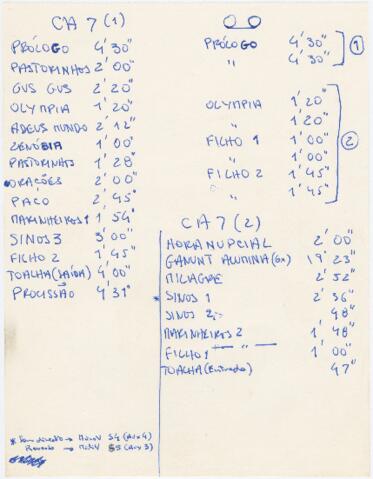 CA 7 (1)
PRÓLOGO 4'30"
PASTORINHOS 2'00"
GUS GUS 2'20"
OLYMPIA 1'20"
ADEUS MUNDO 2'12"
ZENÓBIA 1'00"
PASTORINHOS 1'28"
ORAÇÕES 2'00"
PAÇO 2'45"
MARINHEIROS 1 1'54"
SINOS 3 3'00"
FICHO 2 1'45"
TOALHA (SAÍDA) 4'00"
PROCISSÃO 4'31"
* Som directo → S4 (Aux 4)
→ S5 (Aux 3)
PRÓLOGO 4'30"
" 4'30"
1
OLYMPIA 1'20"
" 1'20"
FICHO 1 1'00"
" 1'00"
FICHO 2 1'45"
" 1'45"
2
CA 7 (2)
HORA NUPCIAL 2'00"
GANUNT ALUMINA (6x) 19'23"
MILAGRE 2'52"
* SINOS 1 2'36"
SINOS 2 48"
MARINHEIROS 2 1'48"
FICHO 1 — " — 1'00"
TOALHA (Entrada) 47"